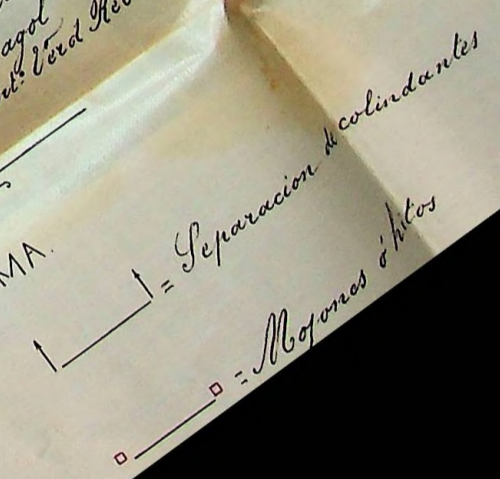 agol
Verd
MA.
= Separacion de colindantes
= Mojones ó hitos